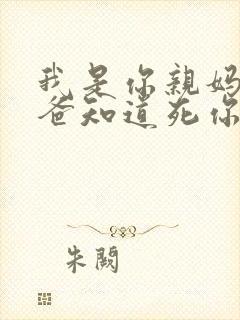 我是你親妈
爸知道死你
朱闕